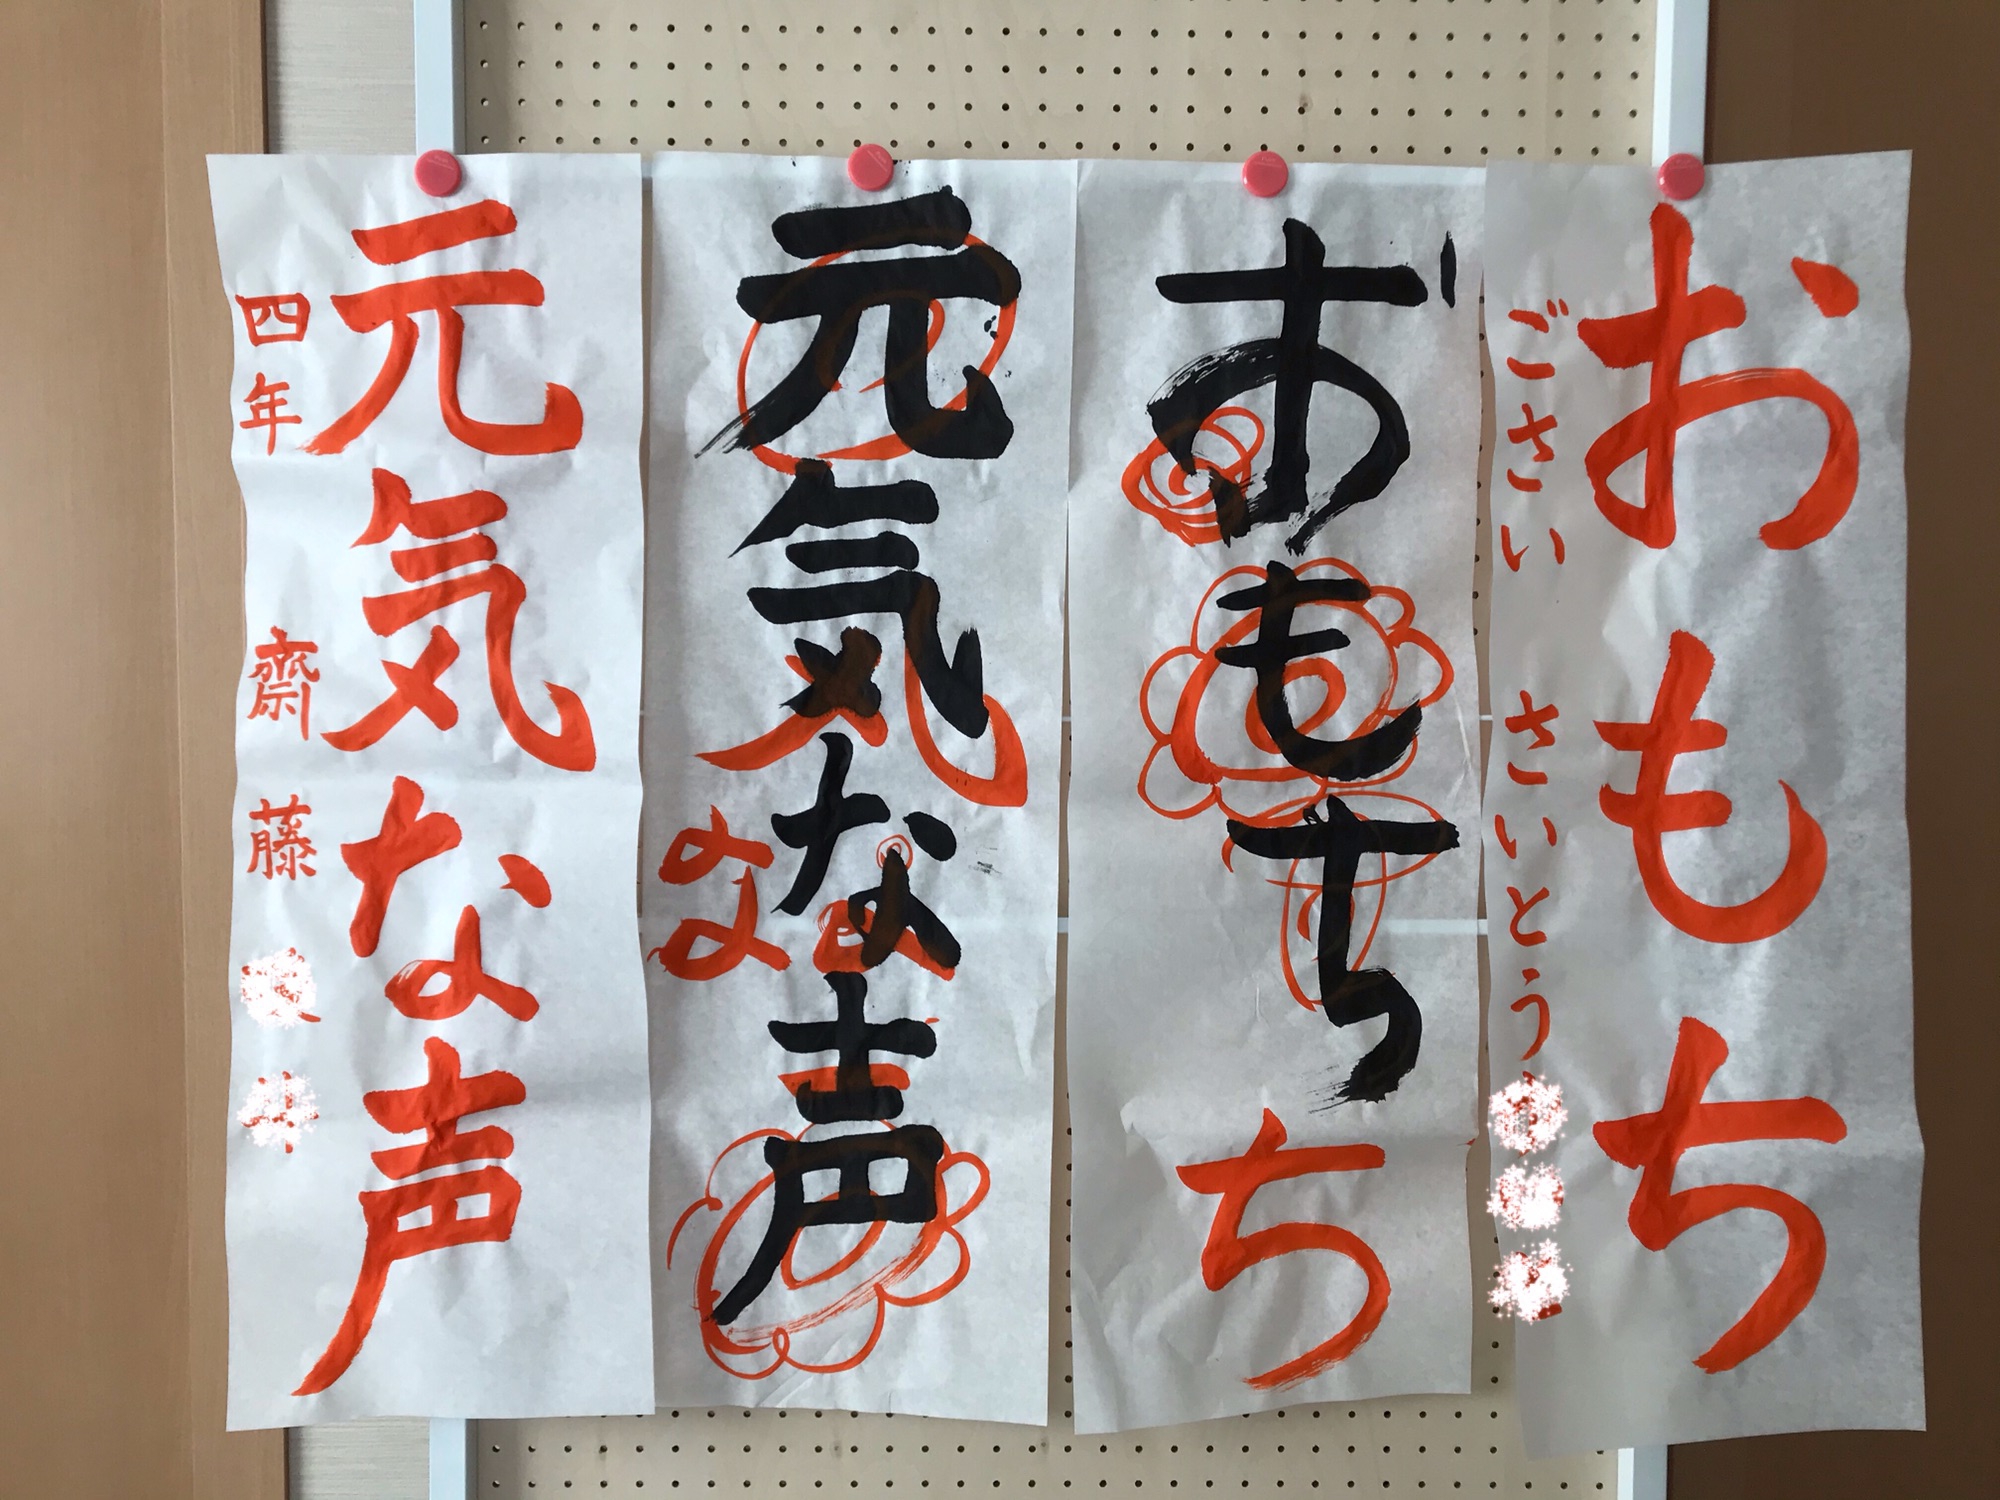 おもち
ごさい さいとう
おもち
ち
元気な声
な
元気な声
四年 齋藤